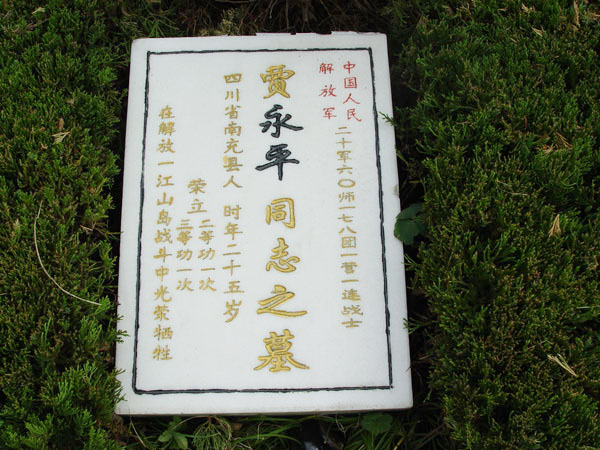 中国人民
解放军
二十军六〇师一七八团一营一连战士
贾永平同志之墓
四川省南充县人 时年二十五岁
荣立二等功一次
三等功一次
在解放一江山岛战斗中光荣牺牲